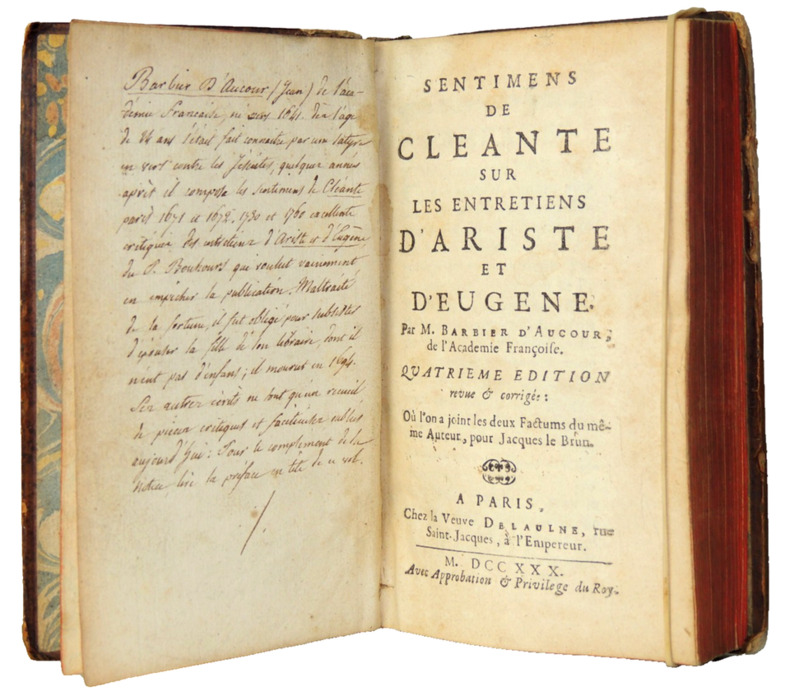 Barbier D'Aucour (Jean) de l'aca-
démie Francaise, né vers 1641. dès l'age
de 24 ans s'était fait connaitre par une satyre
en vers contre les Jésuites, quelques années
après il composa les sentimens de Cléante
paris 1671 et 1672. 1730 et 1760 excellente
critique des entretiens d'Ariste et d'Eugène
du P. Bouhours qui voulut vainement
en empêcher la publication. Maltraité
de la fortune, il fut obligé pour subsister
d'épouser la fille de son libraire, dont il
n'eut pas d'enfans; il mourut en 1694.
Ses autres écrits ne sont qu'un recueil
de pièces critiques et
aujourd'hui: Pour le complement de la
notice lire la préface en tête de ce vol.
SENTIMENS
DE
CLEANTE
SUR
LES ENTRETIENS
D'ARISTE
ET
D'EUGENE.
Par M. BARBIER D'AUCOUR,
de l'Academie Françoise.
QUATRIEME EDITION
revue & corrigée:
Où l'on a joint les deux Factums du mê-
me Auteur, pour Jacques le Brun.
A PARIS,
Chez la Veuve DELAULNE, rue
Saint-Jacques, à l'Empereur.
M. DCC XXX.
Avec Approbation & Privilege du Roy.